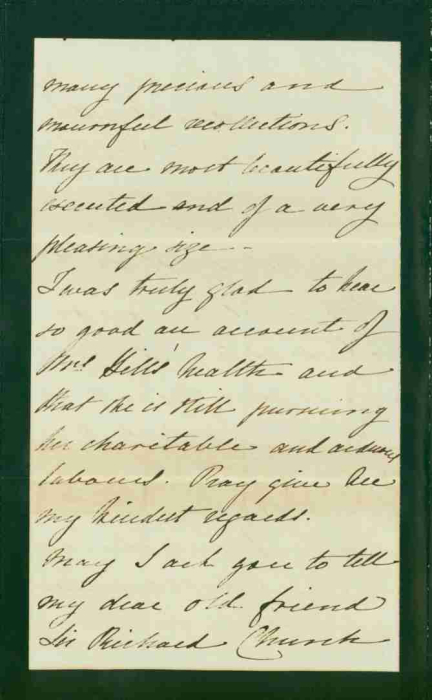 many precious and
mournful recollections.
They are most beautifully
executed and of a very
pleasing size –
I was truly glad to hear
so good an account of
Mrs Hill's health and
that she is still pursuing
her charitable and arduous
labours. Pray give her
my kindest regards.
May I ask you to tell
my dear old friend
Sir Richard Church